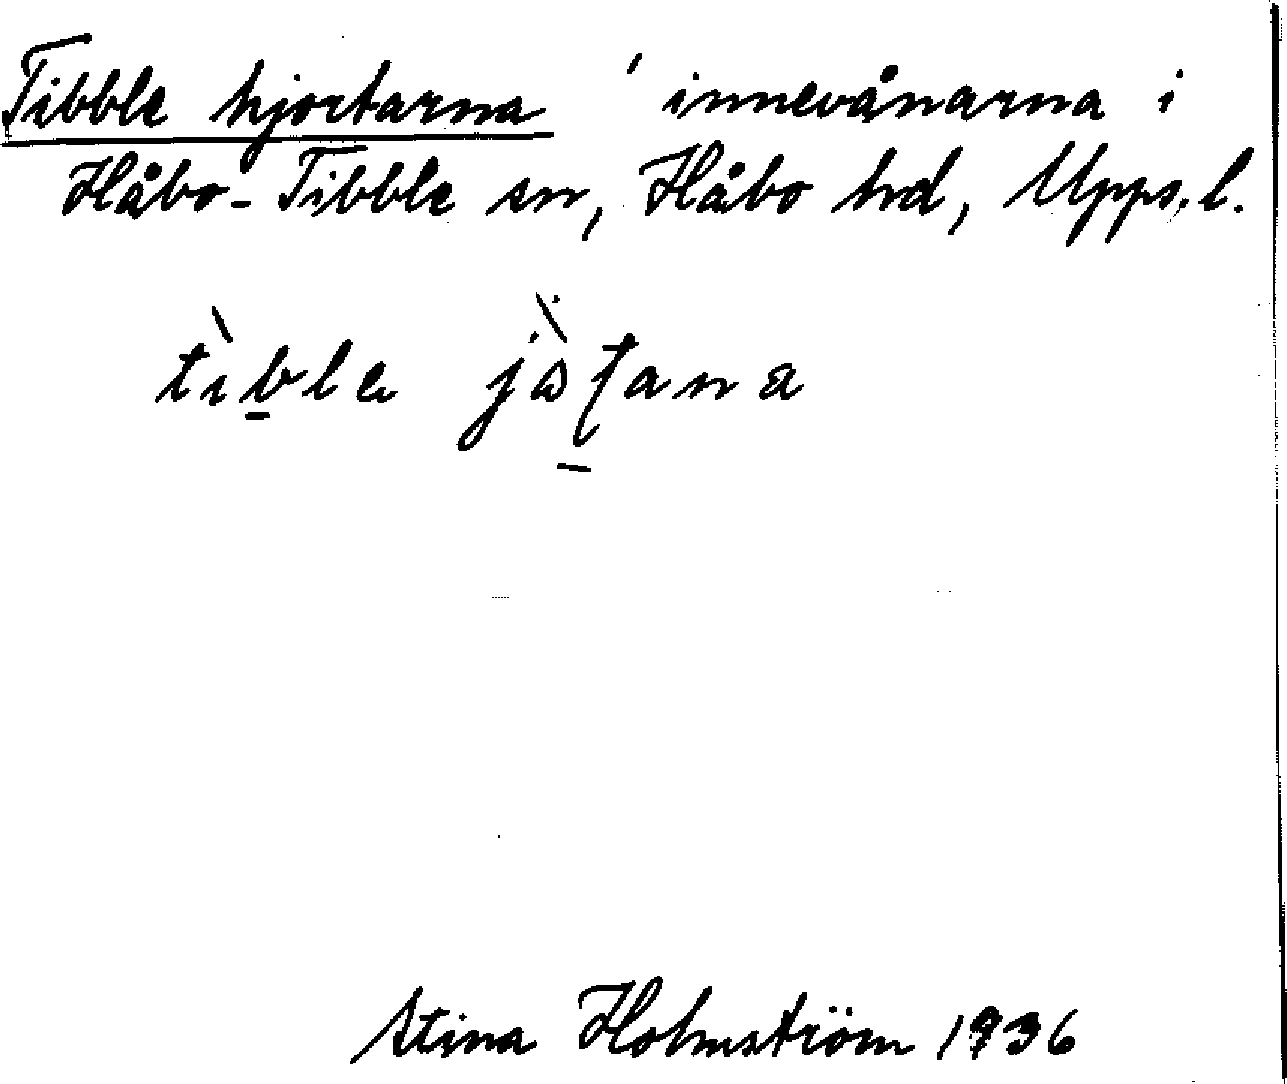 Tibble hjortarna ' innevånarna i
Håbo-Tibble sn, Håbo hd, Upps. l.
tìb̲le jò̈ʈ̲ana
Stina Holmström 1936